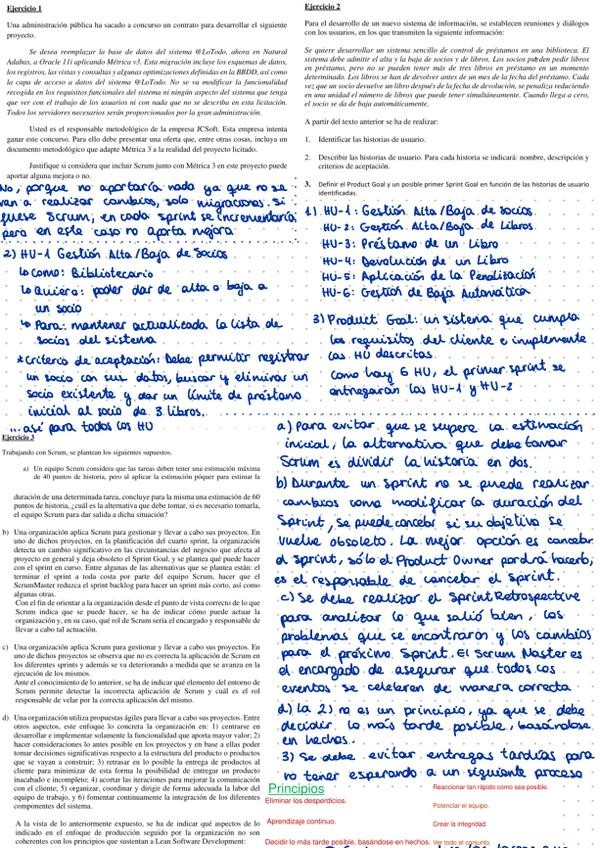 Ejercicio 1
Una administración pública ha sacado a concurso un contrato para desarrollar el siguiente
proyecto.
Se desea reemplazar la base de datos del sistema @LoTodo, ahora en Natural
Adabas, a Oracle 11i aplicando Métrica v3. Esta migración incluye los esquemas de datos,
los registros, las vistas y consultas y algunas optimizaciones definidas en la BBDD, así como
la capa de acceso a datos del sistema @LoTodo. No se va a modificar la funcionalidad
recogida en los requisitos funcionales del sistema ni ningún aspecto del sistema que tenga
que ver con el trabajo de los usuarios ni con nada que no se describa en esta licitación.
Todos los servidores necesarios serán proporcionados por la gran administración.
Usted es el responsable metodológico de la empresa JCSoft. Esta empresa intenta
ganar este concurso. Para ello debe presentar una oferta que, entre otras cosas, incluya un
documento metodológico que adapte Métrica 3 a la realidad del proyecto licitado.
Justifique si considera que incluir Scrum junto con Métrica 3 en este proyecto puede
aportar alguna mejora o no.
No, porque no aportaría nada ya que no se
van a realizar cambios, solo migraciones. Si
fuese Scrum, en cada sprint se incrementaría
pero en este caso no aporta mejora
2) HU-1 Gestión Alta/Baja de Socios
↳ Como: Bibliotecario
↳ Quiero: poder dar de alta o baja a
un socio
↳ Para: mantener actualizada la lista de
socios del sistema
*Criterio de aceptación: Debe permitir registrar
un socio con sus datos, buscar y eliminar un
socio existente y dar un límite de préstamo
inicial al socio de 3 libros.
... así para todas las HU
Ejercicio 2
Para el desarrollo de un nuevo sistema de información, se establecen reuniones y diálogos
con los usuarios, en los que transmiten la siguiente información:
Se quiere desarrollar un sistema sencillo de control de préstamos en una biblioteca. El
sistema debe admitir el alta y la baja de socios y de libros. Los socios pueden pedir libros
en préstamo, pero no se pueden tener más de tres libros en préstamo en un momento
determinado. Los libros se han de devolver antes de un mes de la fecha del préstamo. Cada
vez que un socio devuelve un libro después de la fecha de devolución, se penaliza reduciendo
en una unidad el número de libros que puede tener simultáneamente. Cuando llega a cero,
el socio se da de baja automáticamente.
A partir del texto anterior se ha de realizar:
1. Identificar las historias de usuario.
2. Describir las historias de usuario. Para cada historia se indicará: nombre, descripción y
criterios de aceptación.
3. Definir el Product Goal y un posible primer Sprint Goal en función de las historias de usuario
identificadas.
1) HU-1: Gestión Alta/Baja de Socios
HU-2: Gestión Alta/Baja de Libros
HU-3: Préstamo de un Libro
HU-4: Devolución de un Libro
HU-5: Aplicación de la Penalización
HU-6: Gestión de Baja Automática
3) Product Goal: un sistema que cumpla
los requisitos del cliente e implemente
las HU descritas.
Como hay 6 HU, el primer sprint se
entregarán las HU-1 y HU-2
Ejercicio 3
Trabajando con Scrum, se plantean los siguientes supuestos.
a) Un equipo Scrum considera que las tareas deben tener una estimación máxima
de 40 puntos de historia, pero al aplicar la estimación póquer para estimar la
duración de una determinada tarea, concluye para la misma una estimación de 60
puntos de historia, ¿cuál es la alternativa que debe tomar, si es necesario tomarla,
el equipo Scrum para dar salida a dicha situación?
b) Una organización aplica Scrum para gestionar y llevar a cabo sus proyectos. En
uno de dichos proyectos, en la planificación del cuarto sprint, la organización
detecta un cambio significativo en las circunstancias del negocio que afecta al
proyecto en general y deja obsoleto el Sprint Goal, y se plantea qué puede hacer
con el sprint en curso. Entre algunas de las alternativas que se plantea están: el
terminar el sprint a toda costa por parte del equipo Scrum, hacer que el
ScrumMaster reduzca el sprint backlog para hacer un sprint más corto, así como
algunas otras.
Con el fin de orientar a la organización desde el punto de vista correcto de lo que
Scrum indica que se puede hacer, se ha de indicar cómo puede actuar la
organización y, en su caso, qué rol de Scrum sería el encargado y responsable de
llevar a cabo tal actuación.
c) Una organización aplica Scrum para gestionar y llevar a cabo sus proyectos. En
uno de dichos proyectos se observa que no es correcta la aplicación de Scrum en
los diferentes sprints y además se va deteriorando a medida que se avanza en la
ejecución de los mismos.
Ante el conocimiento de lo anterior, se ha de indicar qué elemento del entorno de
Scrum permite detectar la incorrecta aplicación de Scrum y cuál es el rol
responsable de velar por la correcta aplicación del mismo.
d) Una organización utiliza propuestas ágiles para llevar a cabo sus proyectos. Entre
otros aspectos, este enfoque lo concreta la organización en: 1) centrarse en
desarrollar e implementar solamente la funcionalidad que aporta mayor valor; 2)
hacer consideraciones lo antes posible en los proyectos y en base a ellas poder
tomar decisiones significativas respecto a la estructura del producto o productos
que se vayan a construir; 3) retrasar en lo posible la entrega de productos al
cliente para minimizar de esta forma la posibilidad de entregar un producto
inacabado e incompleto; 4) acortar las iteraciones para mejorar la comunicación
con el cliente; 5) organizar, coordinar y dirigir de forma adecuada la labor del
equipo de trabajo, y 6) fomentar continuamente la integración de los diferentes
componentes del sistema.
A la vista de lo anteriormente expuesto, se ha de indicar qué aspectos de lo
indicado en el enfoque de producción seguido por la organización no son
coherentes con los principios que sustentan a Lean Software Development:
a) Para evitar que se supere la estimación
inicial, la alternativa que debe tomar
Scrum es dividir la historia en dos.
b) Durante un sprint no se puede realizar
cambios como modificar la duración del
Sprint, se puede cancelar si su objetivo se
vuelve obsoleto. La mejor opción es cancelar
el sprint, sólo el Product Owner podrá hacerlo,
es el responsable de cancelar el sprint.
c) Se debe realizar el Sprint Retrospective
para analizar lo que salió bien, los
problemas que se encontraron y los cambios
para el próximo Sprint. El Scrum Master es
el encargado de asegurar que todos los
eventos se celebren de manera correcta
d) La 2) no es un principio, ya que se debe
decidir lo más tarde posible, basándose
en hechos.
3) Se debe evitar entregas tardías para
no tener esperando a un siguiente proceso
Principios
Eliminar los desperdicios.
Aprendizaje continuo.
Decidir lo más tarde posible, basándose en hechos.
Reaccionar tan rápido como sea posible.
Potenciar el equipo.
Crear la integridad.
Ver todo el conjunto.